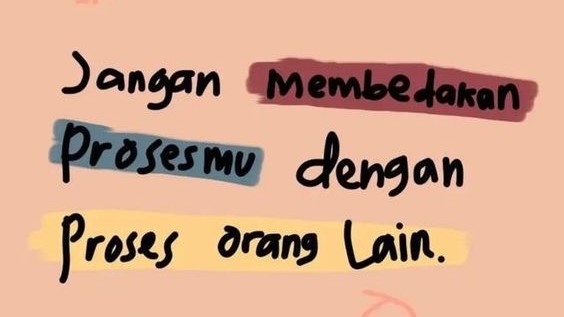 Jangan membedakan
Prosesmu dengan
Proses orang Lain.